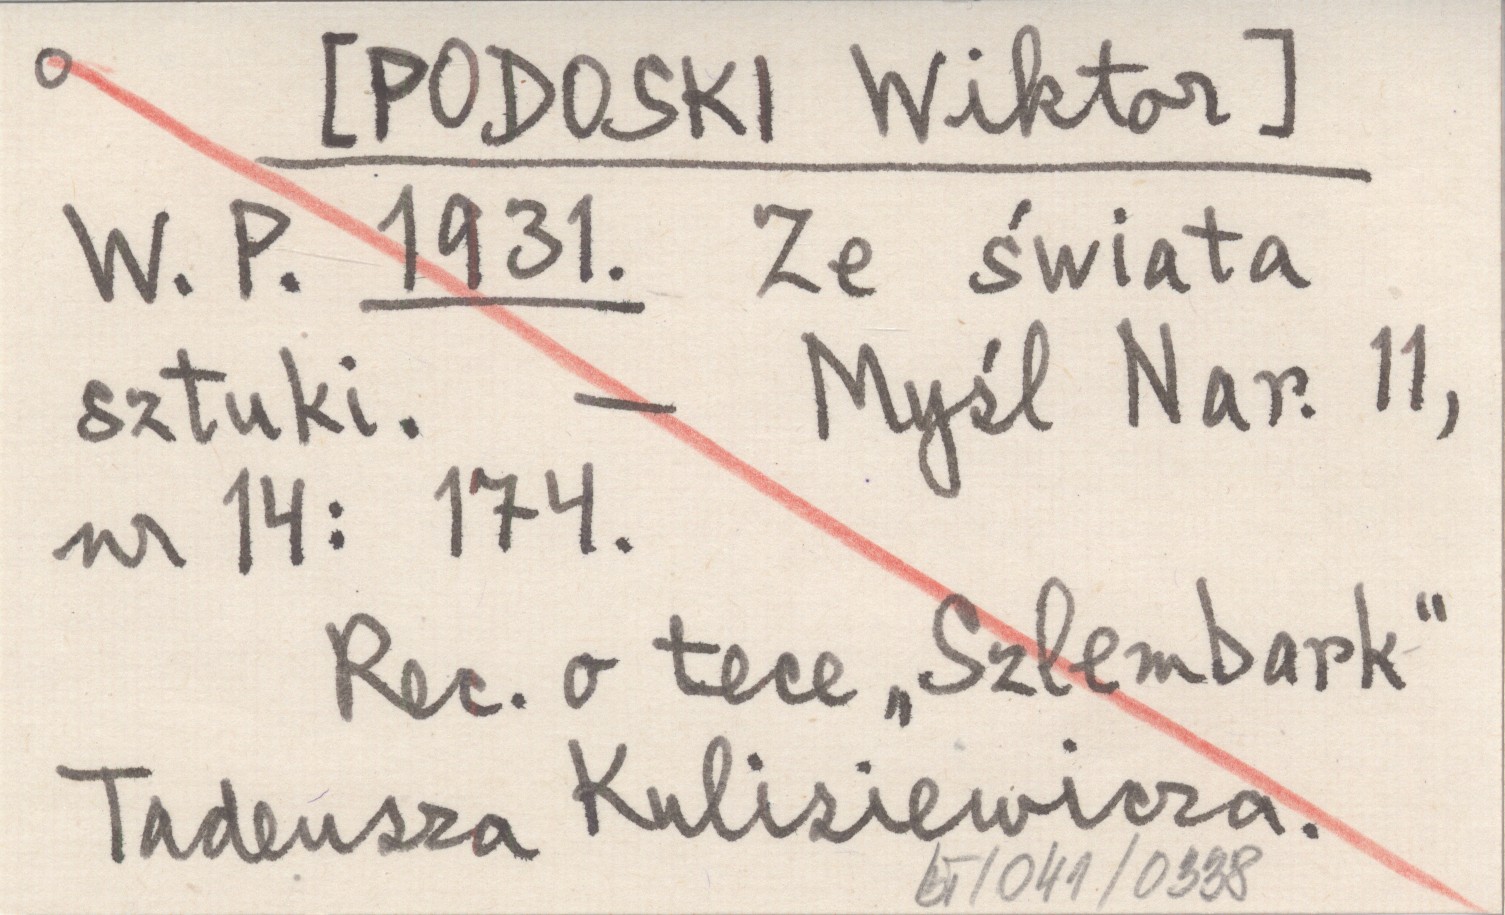 [PODOSKI Wiktor]
W. P. 1931. Ze świata
sztuki. — Myśl Nar. 11,
nr 14: 174.
Rec. o tece „Szlembark“
Tadeusza Kulisiewicza.
/041/0338